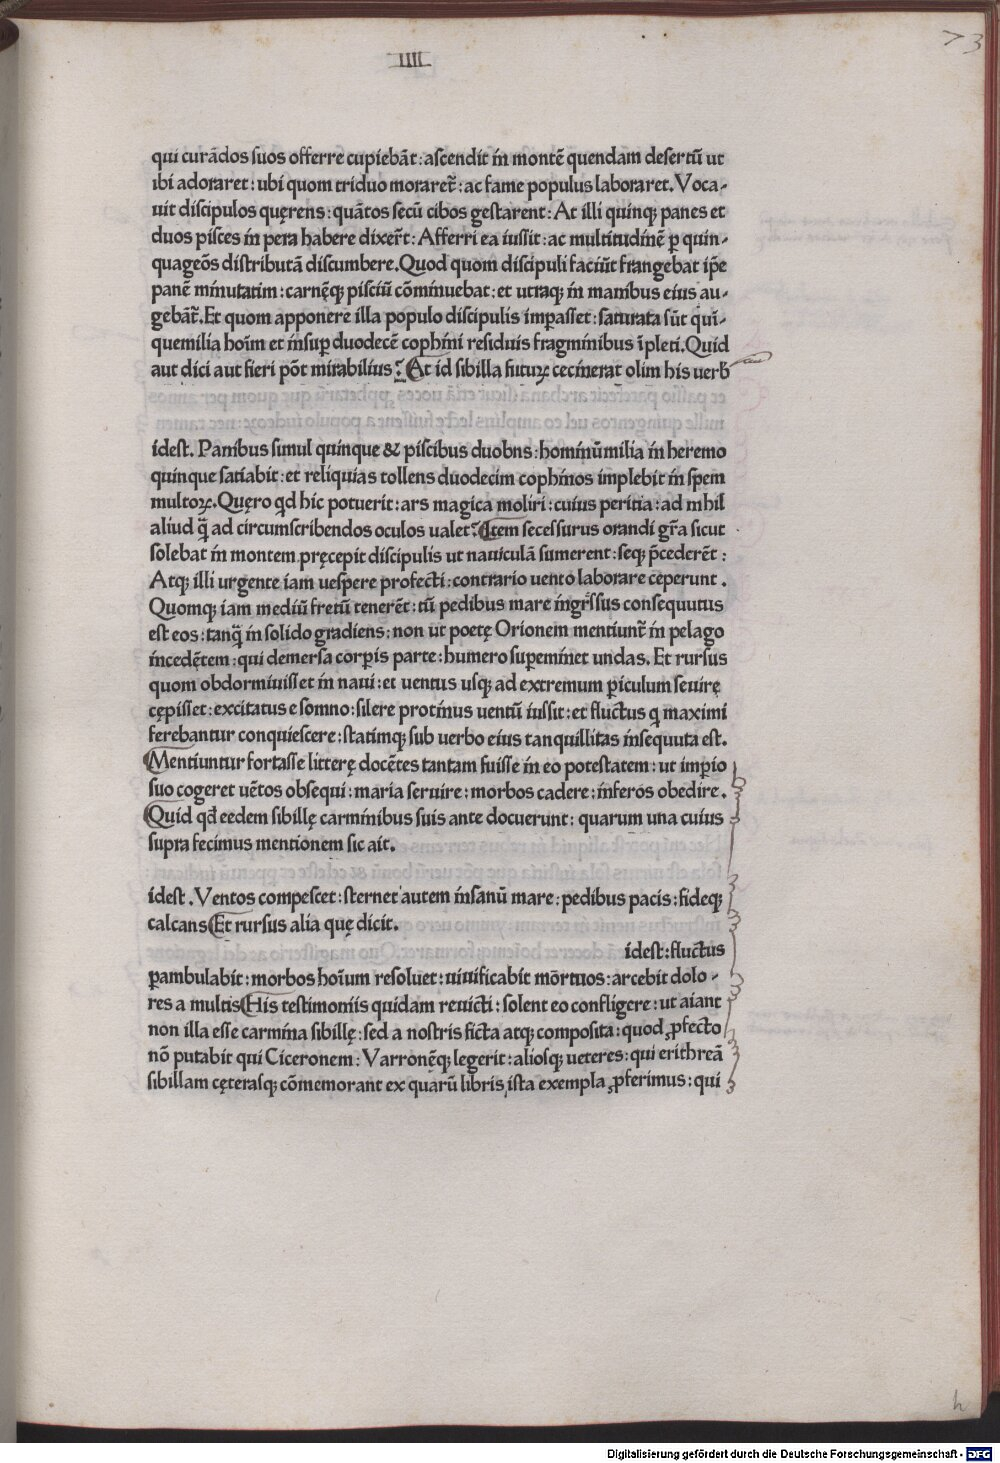 73
IIII
qui curādos suos offerre cupiebāt: ascendit in montē quendam desertū ut
ibi adoraret: ubi quom triduo moraret᷑: ac fame populus laboraret. Voca-
uit discipulos quęrens: quātos secū cibos gestarent: At illi quinqꝫ panes et
duos pisces in pera habere dixer̃t: Afferri ea iussit: ac multitudinē ꝑ quin-
quageōs distributā discumbere. Quod quom discipuli faciūt frangebat ip̄e
panē minutatim: carnēqꝫ pisciū cōminuebat: et utraqꝫ in manibus eius au-
gebāt᷑. Et quom apponere illa populo discipulis imꝑasset: saturata sūt qui-
quemilia hoīm et insuꝑ duodecē cophini residuis fragminibus īpleti. Quid
aut dici aut fieri pōt mirabilius? At id sibilla futuꝝ cecinerat olim his uerb̄
idest. Panibus simul quinque & piscibus duobns: hominūmilia in heremo
quinque satiabit: et reliquias tollens duodecim cophinos implebit in spem
multoꝝ. Quęro qd hic potuerit: ars magica moliri: cuius peritia: ad nihil
aliud q̄ ad circumscribendos oculos ualet? Item secessurus orandi gr̄a sicut
solebat in montem pręcepit discipulis ut nauiculā sumerent: seqꝫ p̄cederēt:
Atqꝫ illi urgente iam uespere profecti: contrario uento laborare ceperunt.
Quomqꝫ iam mediū fretū tenerēt: tū pedibus mare ingr̄ssus consequutus
est eos: tanq̄ in solido gradiens: non ut poetę Orionem mentiunt᷑ in pelago
incedētem: qui demersa corꝑis parte: humero suꝑeminet undas. Et rursus
quom obdormiuisset in naui: et uentus usqꝫ ad extremum ꝑiculum seuirę
cępisset: excitatus e somno: silere protinus uentū iussit: et fluctus q maximi
ferebantur conquiescere: statimqꝫ sub uerbo eius tanquillitas insequuta est.
Mentiuntur fortasse litterę docētes tantam fuisse in eo potestatem: ut imꝑio
suo cogeret uētos obsequi: maria seruire: morbos cadere: inferos obedire.
Quid qd̄ eedem sibillę carminibus suis ante docuerunt: quarum una cuius
supra fecimus mentionem sic ait.
idest. Ventos compescet: sternet autem insanū mare: pedibus pacis: fideqꝫ
calcans Et rursus alia quę dicit.
idest: fluctus
ꝑambulabit: morbos hoīum resoluet: uiuificabit mōrtuos: arcebit dolo-
res a multis His testimoniis quidam reuicti: solent eo confligere: ut aiant
non illa esse carmina sibillę: sed a nostris ficta atqꝫ composita: quod ꝓfecto
nō putabit qui Ciceronem: Varronēqꝫ legerit: aliosqꝫ ueteres: qui erithreā
sibillam cęterasqꝫ cōmemorant ex quarū libris ista exempla ꝓferimus: qui
h
Digitalisierung gefördert durch die Deutsche Forschungsgemeinschaft - DFG